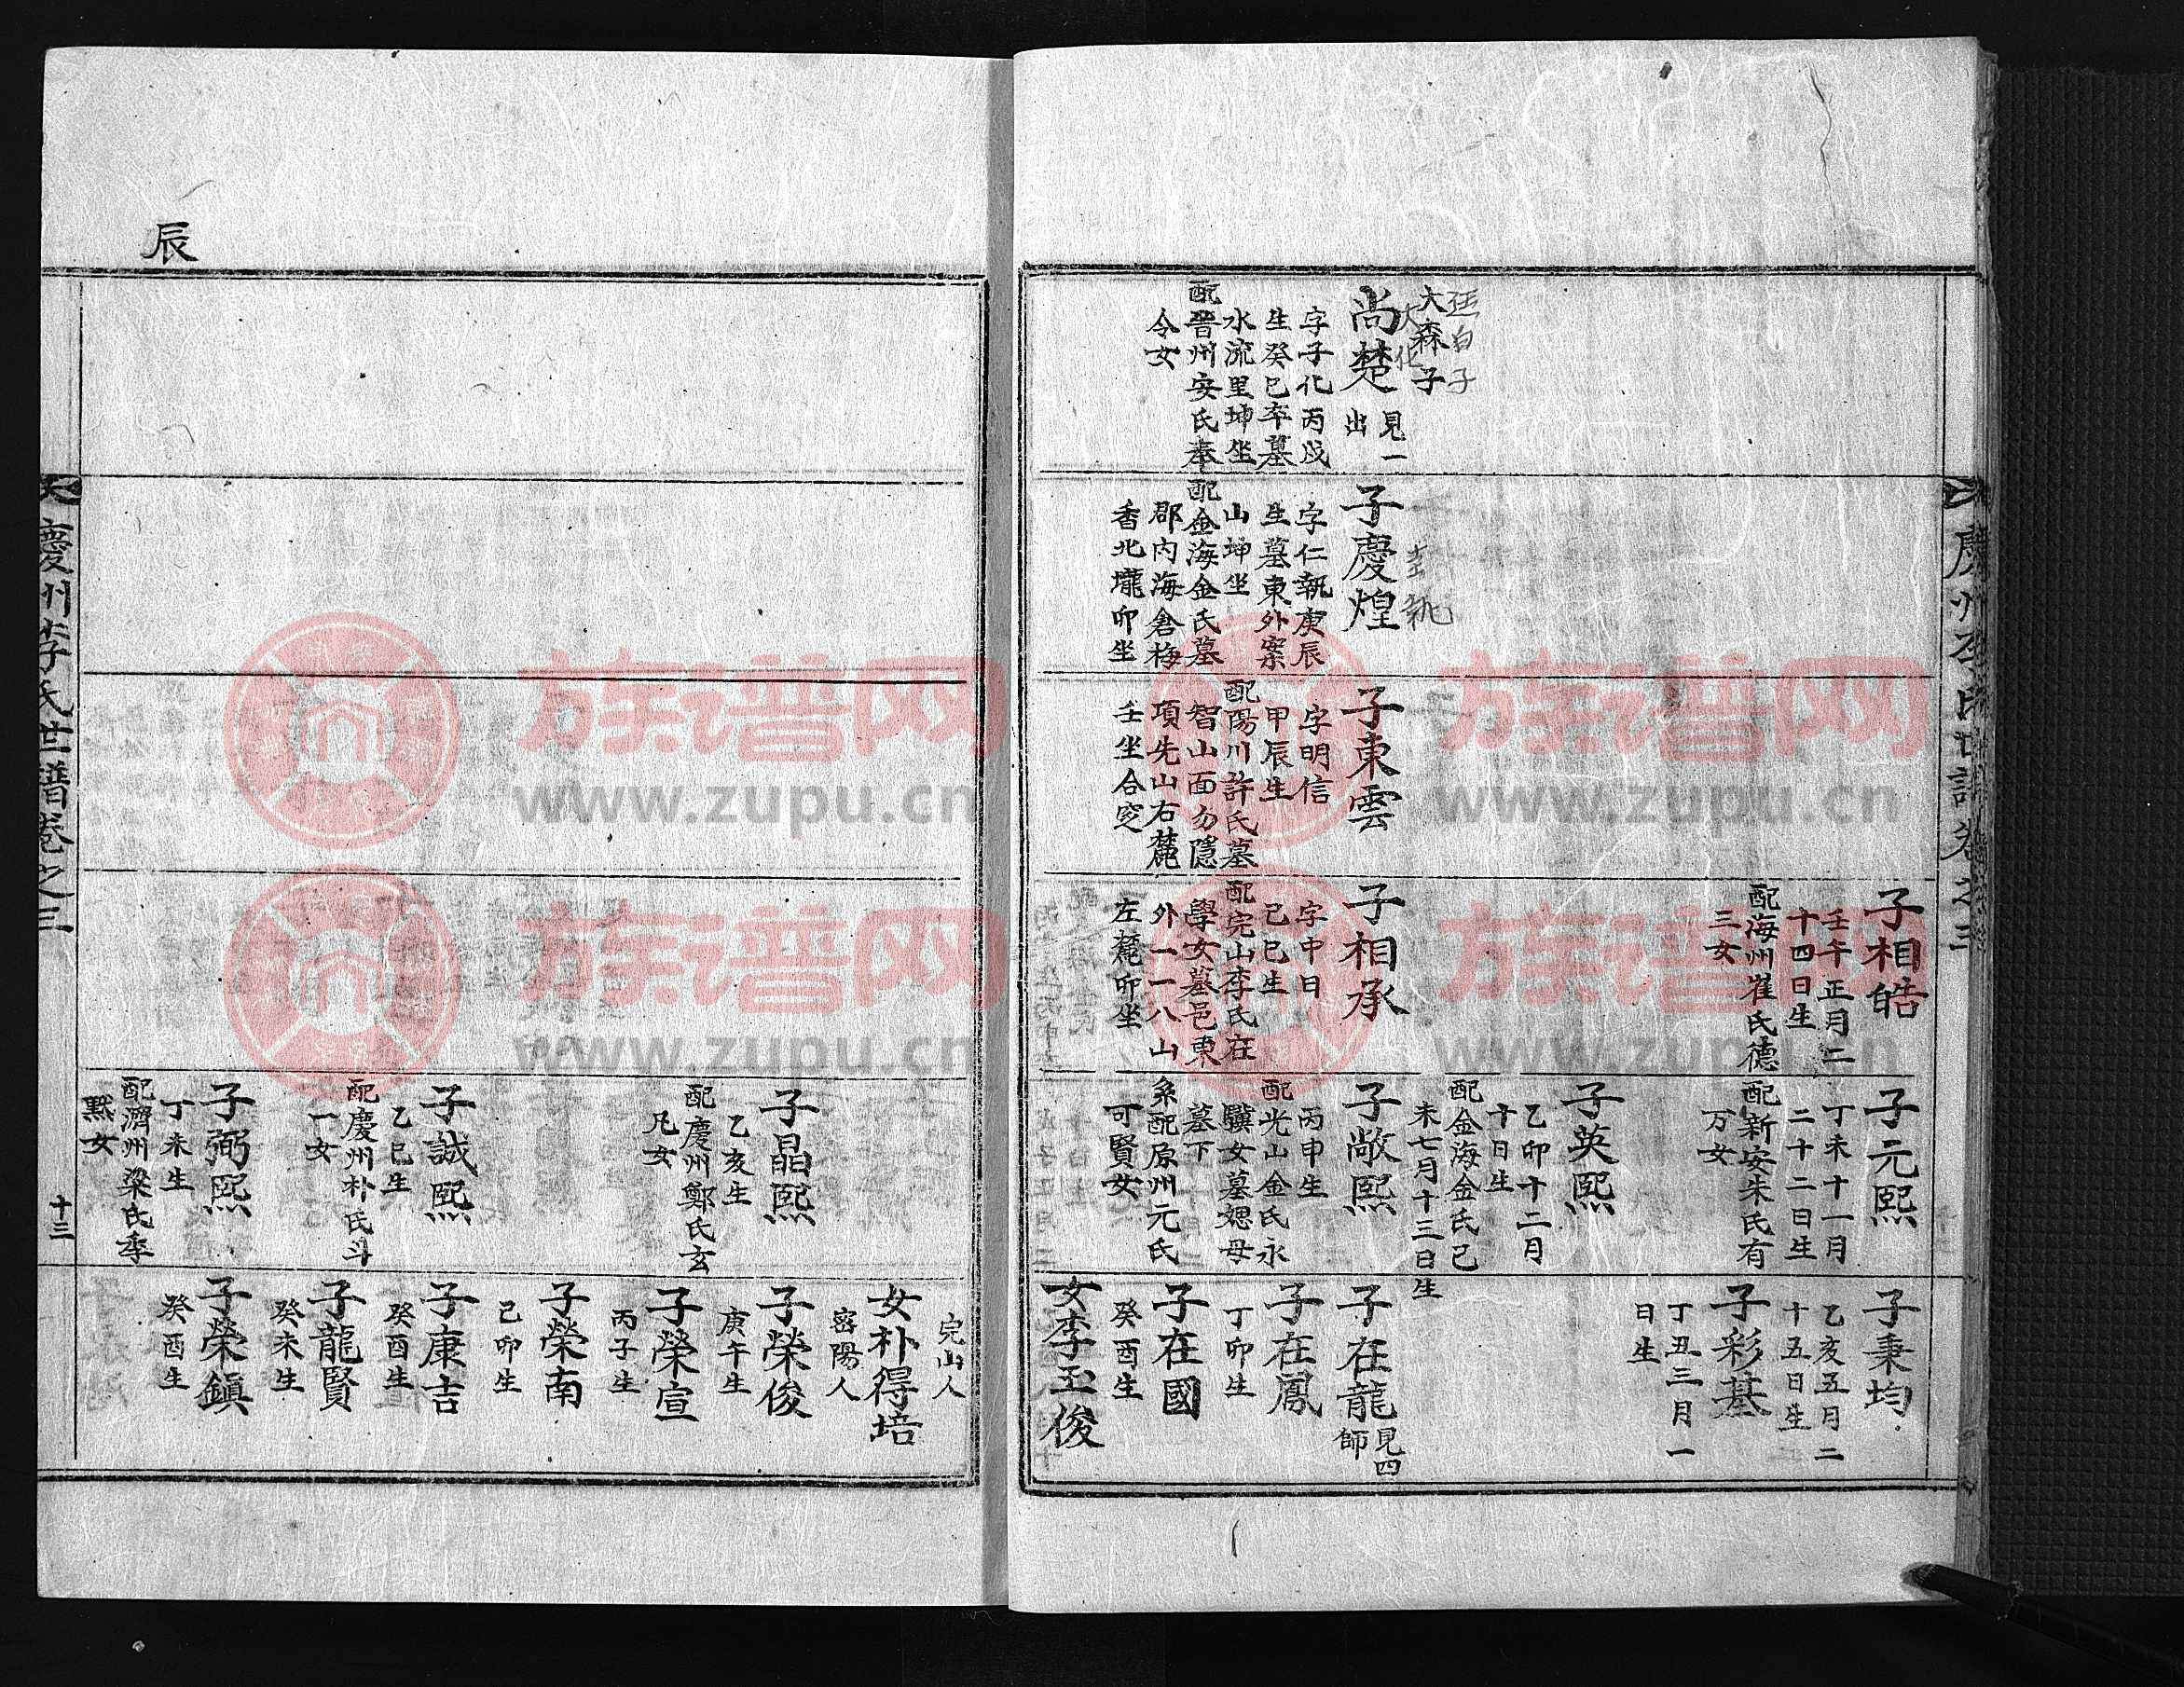 慶州李氏世譜卷之三
大森子
尚楚
見一
出
字子化丙戌
生癸巳卒墓
水流里坤坐
配晉州安氏奉
令女
子慶煌
字仁執庚辰
生墓東外案
山坤坐
配金海金氏墓
郡內海倉梅
香北壠卯坐
子東雲
字明信
甲辰生
配陽川許氏墓
智山面勿隱
項先山右麓
壬坐合窆
子相皓
壬午正月二
十四日生
配海州崔氏德
三女
子相承
字中日
己巳生
配完山李氏在
學女墓邑東
外一一八山
左麓卯坐
子元熙
丁未十一月
二十二日生
配新安朱氏有
万女
子英熙
乙卯十二月
十日生
配金海金氏己
未七月十三日生
子敞熙
丙申生
配光山金氏永
驥女墓媤母
墓下
系配原州元氏
可賢女
子秉均
乙亥五月二
十五日生
子彩基
丁丑三月一
日生
子在龍
見四
師
子在鳳
丁卯生
子在國
癸酉生
女李玉俊
辰
子晶熙
乙亥生
配慶州鄭氏玄
凡女
子誠熙
乙巳生
配慶州朴氏斗
一女
子弼熙
丁未生
配濟州梁氏季
黙女
完山人
女朴得培
密陽人
子榮俊
庚午生
子榮宣
丙子生
子榮南
己卯生
子康吉
癸酉生
子龍賢
癸未生
子榮鎭
癸酉生
慶州李氏世譜卷之三
十三
族谱网
www.zupu.cn
族谱网
www.zupu.cn
族谱网
www.zupu.cn
族谱网
www.zupu.cn